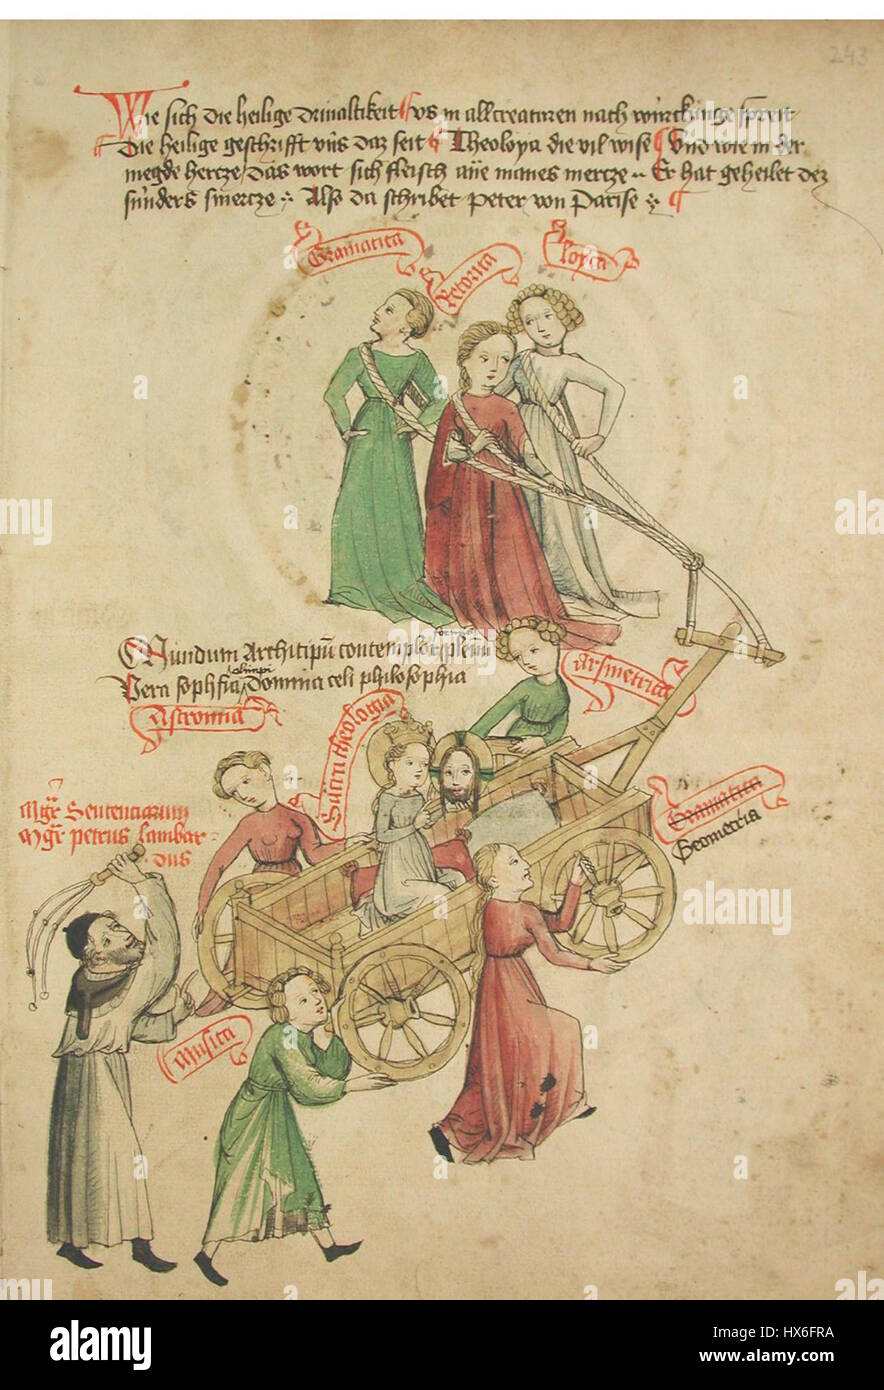 243
Wie sich die heilige drivaltikeit vs in all creaturen nach würckunge spreit
Die heilige geschrifft vns daz seit Theoloya die vil wise Vnd wie in der
megde hertze das wort sich fleisch ane manes mertze Er hat geheilet dez
sünders smertze Also da schribet Peter von Parise
Gramatica
Retorica
loyca
Mundum Architipū contemplor
Vera sophia Domina celi philosophia
Arsmetrica
Astronmia
Sacra theologia
Mgr Sentenciarum
Mgr petrus lambar
dus
Gramatica
Geometria
Musica
alamy stock photo
HX6FRA
www.alamy.com